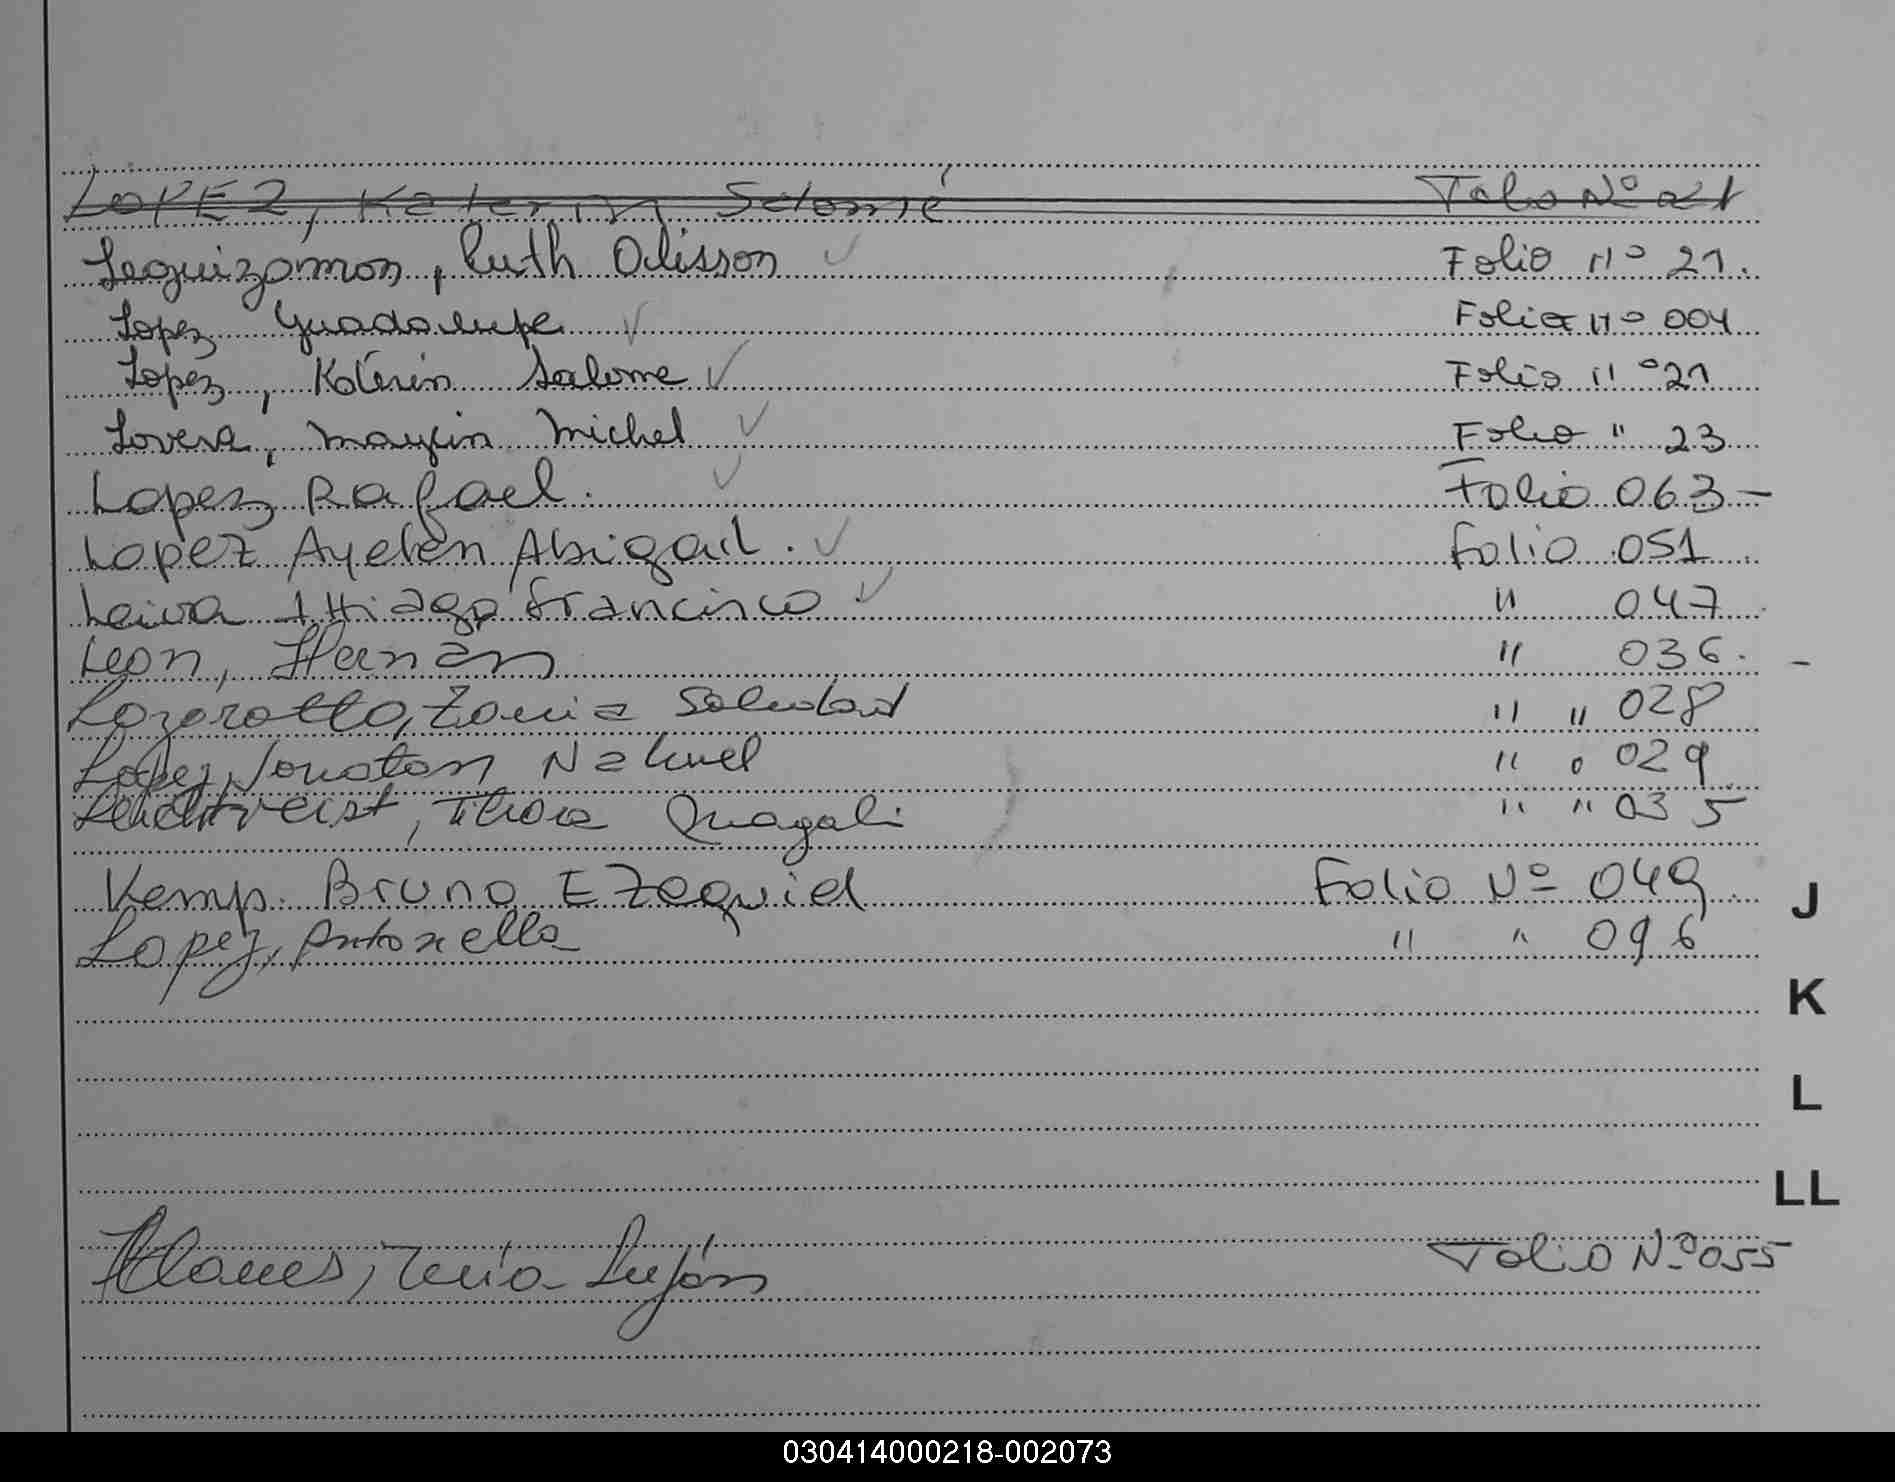 LOPEZ, Katerin Salomé Folio Nº 021
Leguizamon, Ruth Alisson Folio nº 21.
Lopez Guadalupe Folio nº 004
Lopez, Katerin Salome Folio nº 21
Lovera, Maylin Michel Folio " 23
Lopez Rafael. Folio 063-
Lopez Ayelen Abigail. Folio 051
Leiva Thiago Francisco " 047
Leon, Hernan " 036. -
Lazarotto, Soledad " " 028
Lopez, Jonatan Nahuel " " 029
Magali " " 035
Kemp. Bruno Ezequiel Folio Nº 049
J
Lopez, Antonella " " 096
K
L
LL
Llanes, Luján Folio Nº 055
030414000218-002073